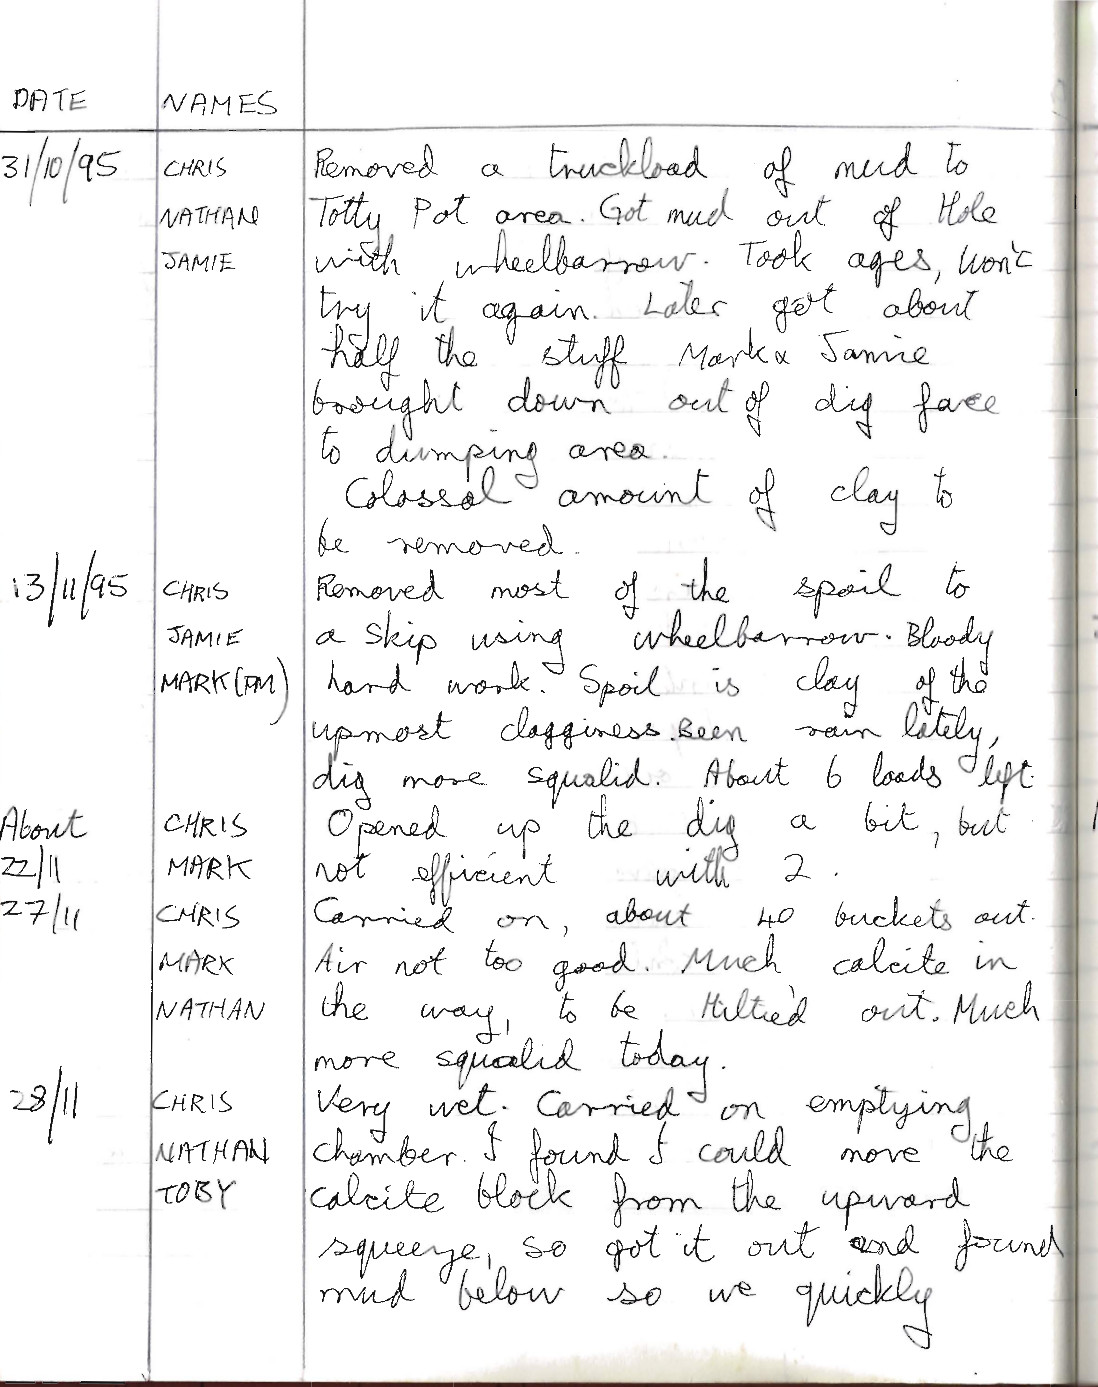 DATE NAMES
31/10/95 CHRIS Removed a truckload of mud to
NATHAN Totty Pot area. Got mud out of Hole
JAMIE with wheelbarrow. Took ages, won't
try it again. Later got about
half the stuff Mark & Jamie
brought down out of dig face
to dumping area.
Colossal amount of clay to
be removed.
13/11/95 CHRIS Removed most of the spoil to
JAMIE a skip using wheelbarrow. Bloody
MARK (PM) hard work. Spoil is clay of the
upmost clagginess. Been rain lately,
dig more squalid. About 6 loads left
About CHRIS Opened up the dig a bit, but
22/11 MARK not efficient with 2.
27/11 CHRIS Carried on, about 40 buckets out.
MARK Air not too good. Much calcite in
NATHAN the way, to be Hiltied out. Much
more squalid today.
28/11 CHRIS Very wet. Carried on emptying
NATHAN chamber. I found I could move the
TOBY calcite block from the upward
squeeze, so got it out and found
mud below so we quickly